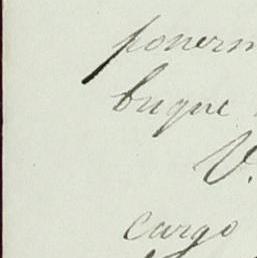 ponerm
buque
V.
cargo